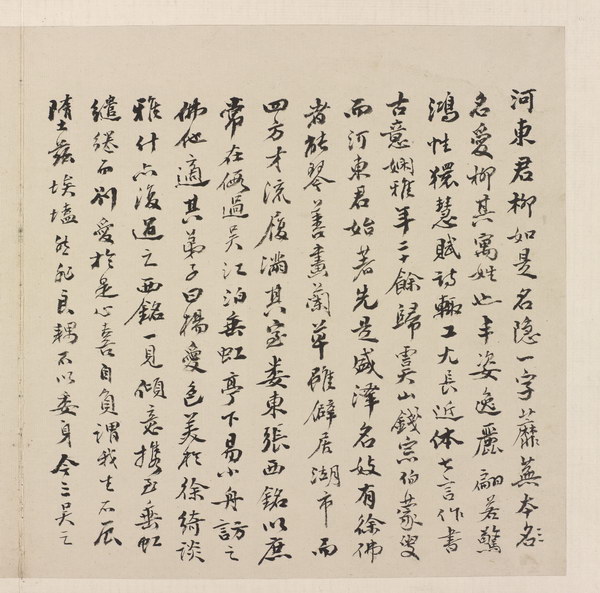 河東君柳如是名隐一字蘼蕪本名
名愛柳其寓姓也丰姿逸麗翩若驚
鴻性獧慧賦诗輙工尤長近体七言作書
古意娴雅年二十餘歸雲山錢宗伯蒙叟
而河東君始著先是盛澤名妓有徐佛
者能琴善畫蘭草雖僻居湖市而
四方才流履滿其室娄東張西銘以庶
常在假過吴江泊垂虹亭下易小舟訪之
佛他適其弟子曰楊愛色美於徐綺談
雅什亦復過之西銘一見傾意攜至垂虹
繾綣而别愛於是心喜自負謂我生不辰
墮兹埃壒然非良耦不以委身今三吴之